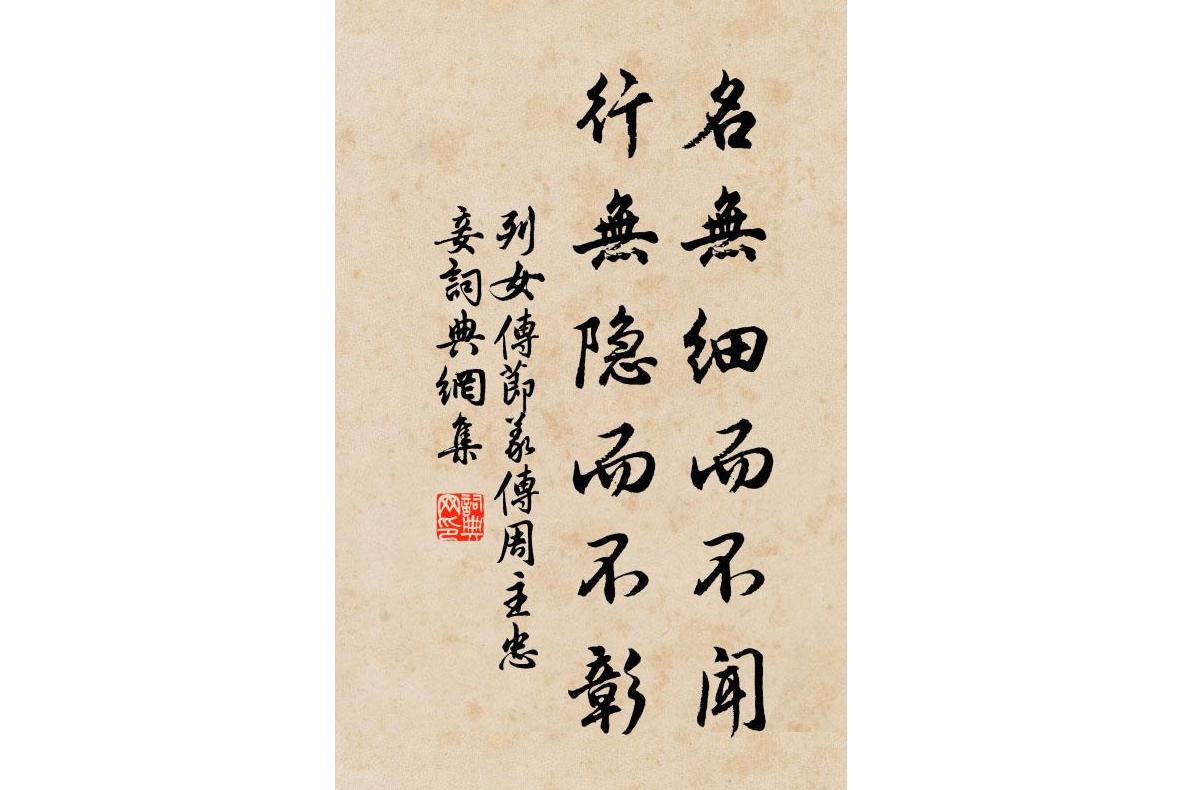 名無细而不闻
行無隐而不彰
列女傳節義傳周主忠
妾詞典網集
詞典网印